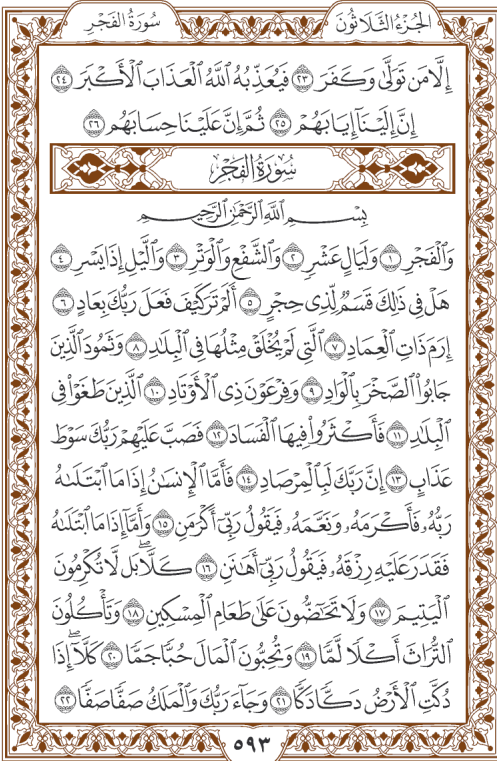 الجُزْءُ الثَّلَاثُونَ سُورَةُ الفَجْرِ
إِلَّا مَن تَوَلَّىٰ وَكَفَرَ ٢٣ فَيُعَذِّبُهُ ٱللَّهُ ٱلْعَذَابَ ٱلْأَكْبَرَ ٢٤
إِنَّ إِلَيْنَآ إِيَابَهُمْ ٢٥ ثُمَّ إِنَّ عَلَيْنَا حِسَابَهُم ٢٦
سُورَةُ الفَجْرِ
بِسْمِ ٱللَّهِ ٱلرَّحْمَٰنِ ٱلرَّحِيمِ
وَٱلْفَجْرِ ١ وَلَيَالٍ عَشْرٖ ٢ وَٱلشَّفْعِ وَٱلْوَتْرِ ٣ وَٱلَّيْلِ إِذَا يَسْرِ ٤
هَلْ فِي ذَٰلِكَ قَسَمٞ لِّذِي حِجْرٍ ٥ أَلَمْ تَرَ كَيْفَ فَعَلَ رَبُّكَ بِعَادٍ ٦
إِرَمَ ذَاتِ ٱلْعِمَادِ ٧ ٱلَّتِي لَمْ يُخْلَقْ مِثْلُهَا فِي ٱلْبِلَٰدِ ٨ وَثَمُودَ ٱلَّذِينَ
جَابُوا۟ ٱلصَّخْرَ بِٱلْوَادِ ٩ وَفِرْعَوْنَ ذِي ٱلْأَوْتَادِ ١٠ ٱلَّذِينَ طَغَوْا۟ فِي
ٱلْبِلَٰدِ ١١ فَأَكْثَرُوا۟ فِيهَا ٱلْفَسَادَ ١٢ فَصَبَّ عَلَيْهِمْ رَبُّكَ سَوْطَ
عَذَابٍ ١٣ إِنَّ رَبَّكَ لَبِٱلْمِرْصَادِ ١٤ فَأَمَّا ٱلْإِنسَٰنُ إِذَا مَا ٱبْتَلَىٰهُ
رَبُّهُۥ فَأَكْرَمَهُۥ وَنَعَّمَهُۥ فَيَقُولُ رَبِّيٓ أَكْرَمَنِ ١٥ وَأَمَّآ إِذَا مَا ٱبْتَلَىٰهُ
فَقَدَرَ عَلَيْهِ رِزْقَهُۥ فَيَقُولُ رَبِّيٓ أَهَٰنَنِ ١٦ كَلَّاۖ بَل لَّا تُكْرِمُونَ
ٱلْيَتِيمَ ١٧ وَلَا تَحَٰٓضُّونَ عَلَىٰ طَعَامِ ٱلْمِسْكِينِ ١٨ وَتَأْكُلُونَ
ٱلتُّرَاثَ أَكْلًا لَّمًّا ١٩ وَتُحِبُّونَ ٱلْمَالَ حُبًّا جَمًّا ٢٠ كَلَّآۖ إِذَا
دُكَّتِ ٱلْأَرْضُ دَكًّا دَكًّا ٢١ وَجَآءَ رَبُّكَ وَٱلْمَلَكُ صَفًّا صَفًّا ٢٢
٥٩٣